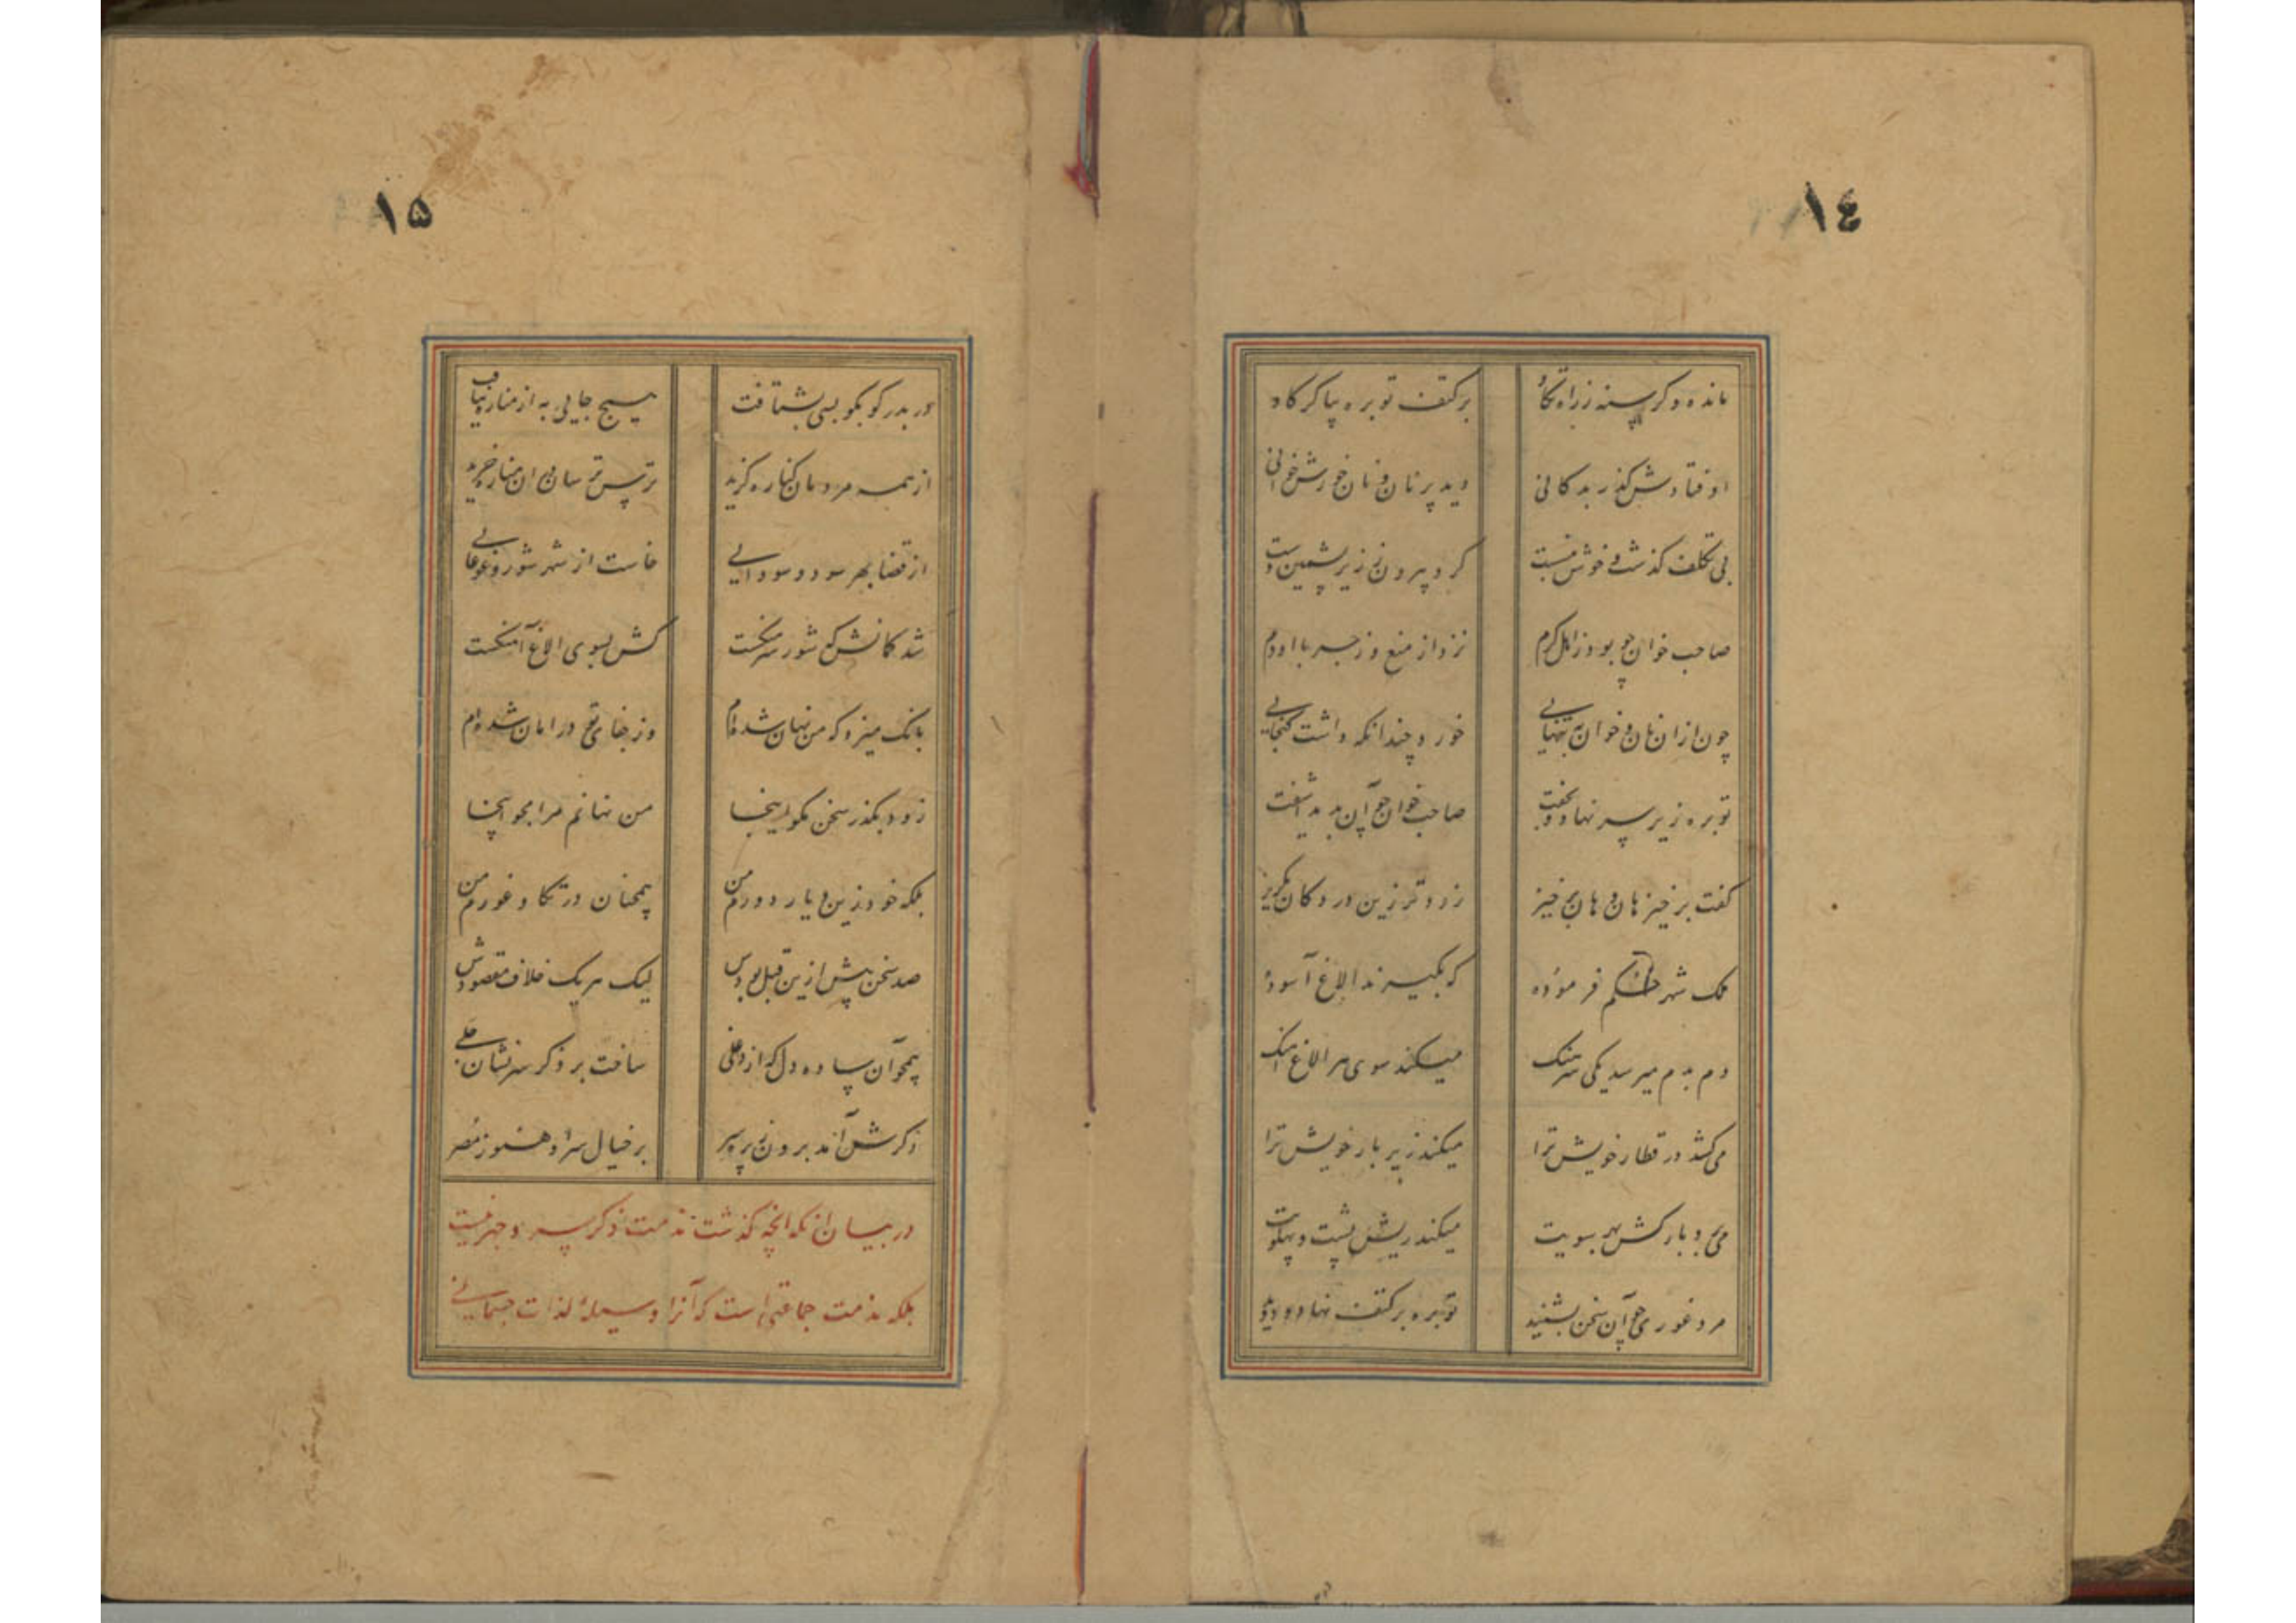 ١٤
مانده و کرسنه ز راه تکاو برکتف توبره پیاکرکاو
اوفتادش کذر بدکانی دید پر نان و نان خورش خوانی
بی تکلف کذشت و خوش بنشست کرد بیرون ز زیر پشمین دست
صاحب خوان چو بود ز اهل کرم نزد از منع و زجر با او دم
چون ازان نان و خوان به تنهایی خورد چندانکه داشت کنجایی
توبره زیر سر نهاد و بخفت صاحب خوان چو آن بدید اشفت
کفت برخیز هان و هان برخیز زودتر زین در دکان بکریز
ملک شهر حکم فرموده که بکیرند الاغ آسوده
دم بدم میرسد یکی سرهنک میکند سوی هر الاغ اهنک
می کشد در قطار خویش ترا میکند زیر بار خویش ترا
می نهد بارکش بهر سویت میکند ریش پشت و پهلویت
مرد غوری چو آن سخن بشنید توبره برکتف نهاد و دوید
١٥
در بدر کو بکو بسی بشتافت هیچ جایی به از مناره نیافت
از همه مردمان کناره کزید ترس ترسان دران مناره خزید
از قضا بهر سود و سودایی خاست از شهر شور و غوغایی
شد کمانش که شور سرهنکست کش بسوی الاغ آهنکست
بانک میزد که من نهان شده ام وز جفای تو در امان شده ام
زود بکذر سخن مکو اینجا من نهانم مرا مجو اینجا
بلکه خود زین دیار دورم من همچنان در تکاو غورم من
صد سخن بیش ازین قبل بودش لیک هر یک خلاف مقصودش
همچو آن ساده دل که از دغلی ساخت بر ذکر سر نشان جلی
ذکرش آمد برون ز پرده سر بر خیال سر او هنوز مصر
در بیان انکه انچه کذشت نه مذمت ذکر سر و جهرست
بلکه مذمت جماعتی است که آنرا وسیلۀ لذات جسمانی